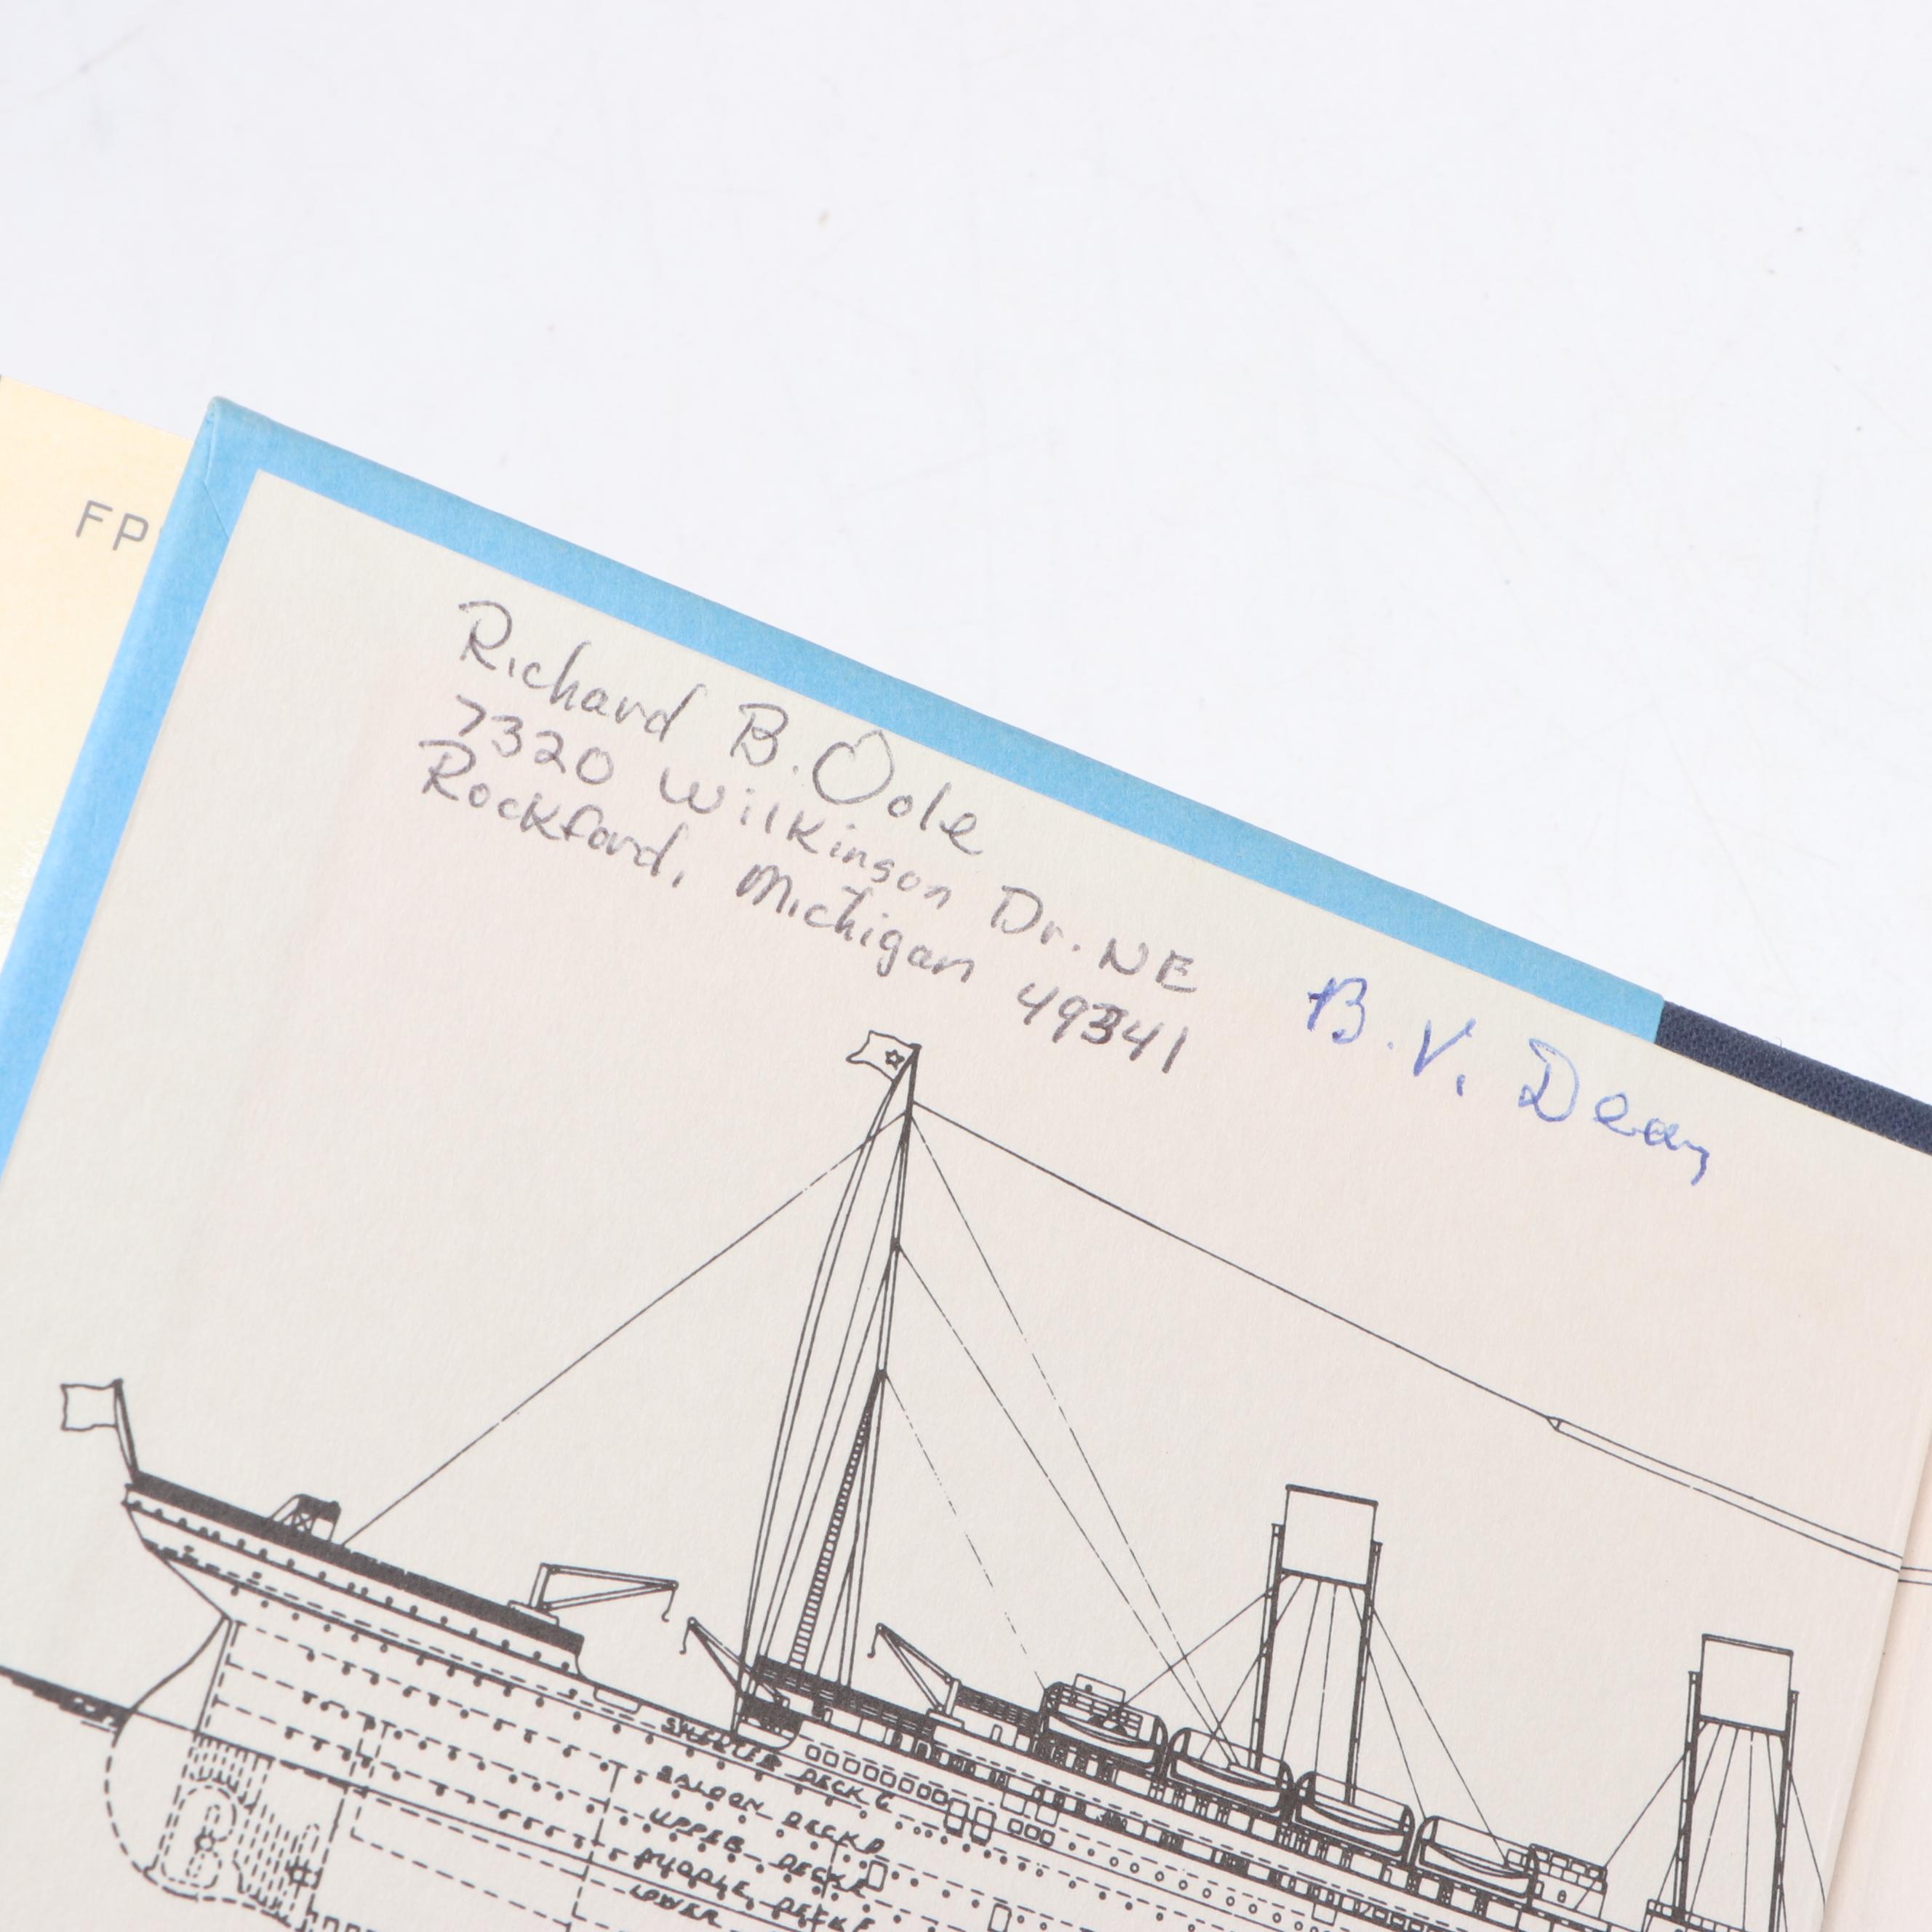 FP
Richard B. Oole
7320 Wilkinson Dr. NE
Rockford, Michigan 49341
B. V. Dean
SHELTER DECK C
SALOON DECK D
UPPER DECK E
MIDDLE DECK F
LOWER